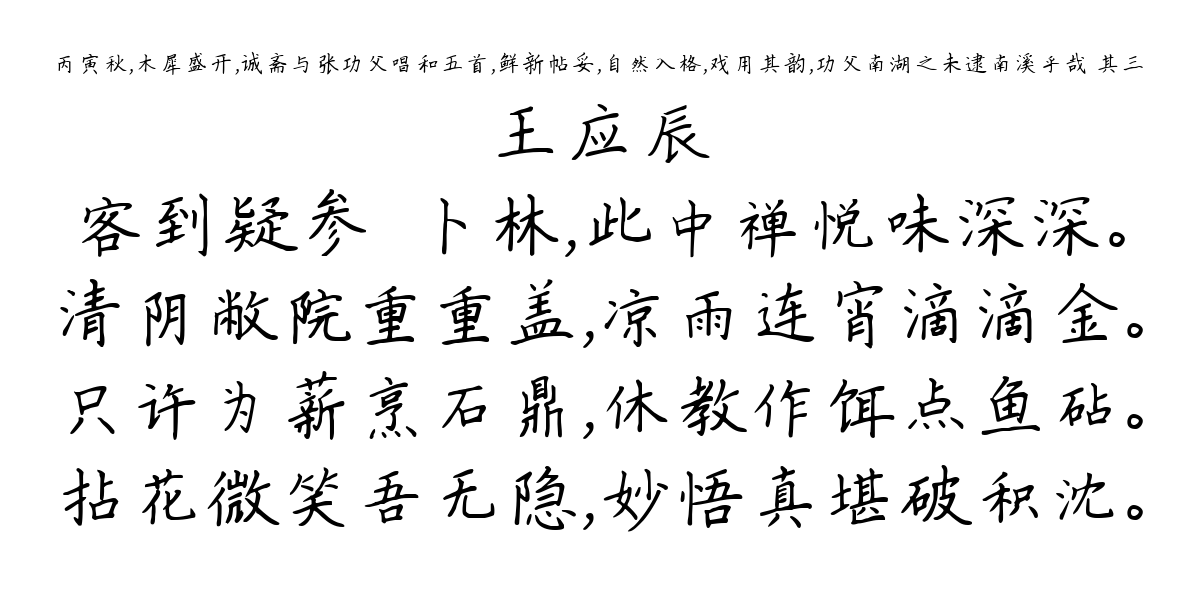 丙寅秋,木犀盛开,诚斋与张功父唱和五首,鲜新帖妥,自然入格,戏用其韵,功父南湖之未逮南溪乎哉 其三
王应辰
客到疑参 卜林,此中禅悦味深深。
清阴敝院重重盖,凉雨连宵滴滴金。
只许为薪烹石鼎,休教作饵点鱼砧。
拈花微笑吾无隐,妙悟真堪破积沈。